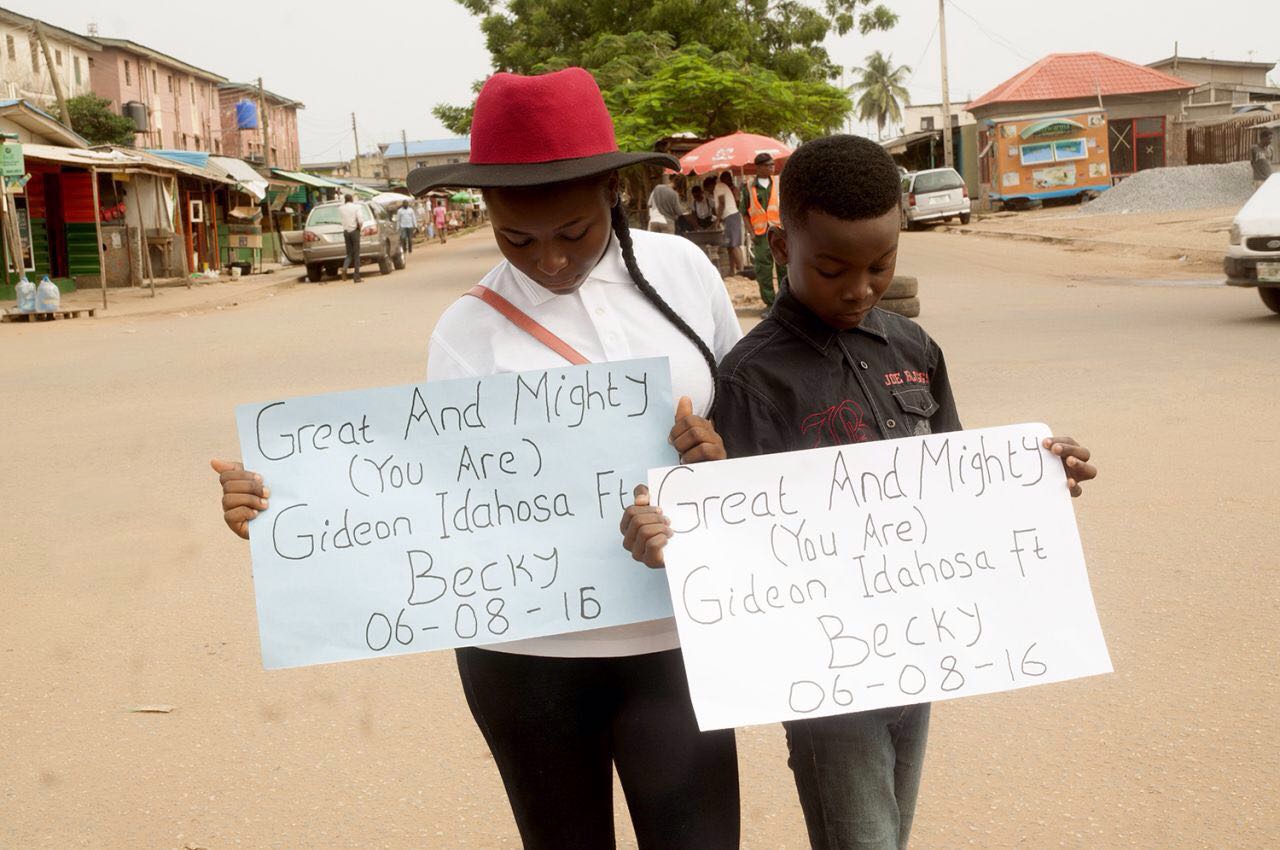 Great And Mighty
(You Are)
Gideon Idahosa Ft
Becky
06-08-16
Great And Mighty
(You Are)
Gideon Idahosa Ft
Becky
06-08-16
JOE